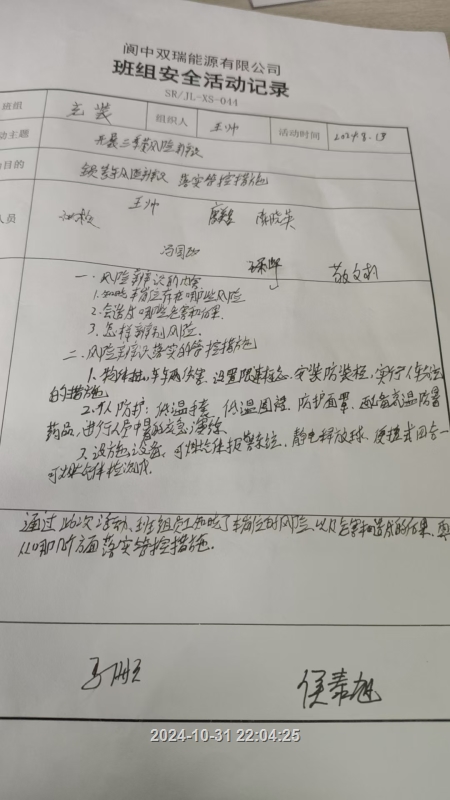 阆中双瑞能源有限公司
班组安全活动记录
SR/JL-XS-044
班组 充装 组织人 王帅 活动时间 2024.8.19
动主题 开展三季度风险辨识
目的 落实管控措施
人员 王帅
一、风险辨识的内容
1.知晓本岗位存在哪些风险
2.会造成哪些危害和后果
3.怎样辨别风险
二、风险辨识落实的管控措施
1.物体打击,车辆伤害、设置限速标志、安装防装柱,实行人车分流
的措施
2.个人防护:低温手套、低温围裙、防护面罩、配备高温防暑
药品,进行人员中暑的应急演练
3.设施、设备:可燃气体报警系统,静电释放球,便携式四合一
可燃气体检测仪
通过此次活动,班组员工知晓了本岗位的风险,以及危害和造成的后果,
从哪几个方面落实管控措施.
侯春旭
2024-10-31 22:04:25